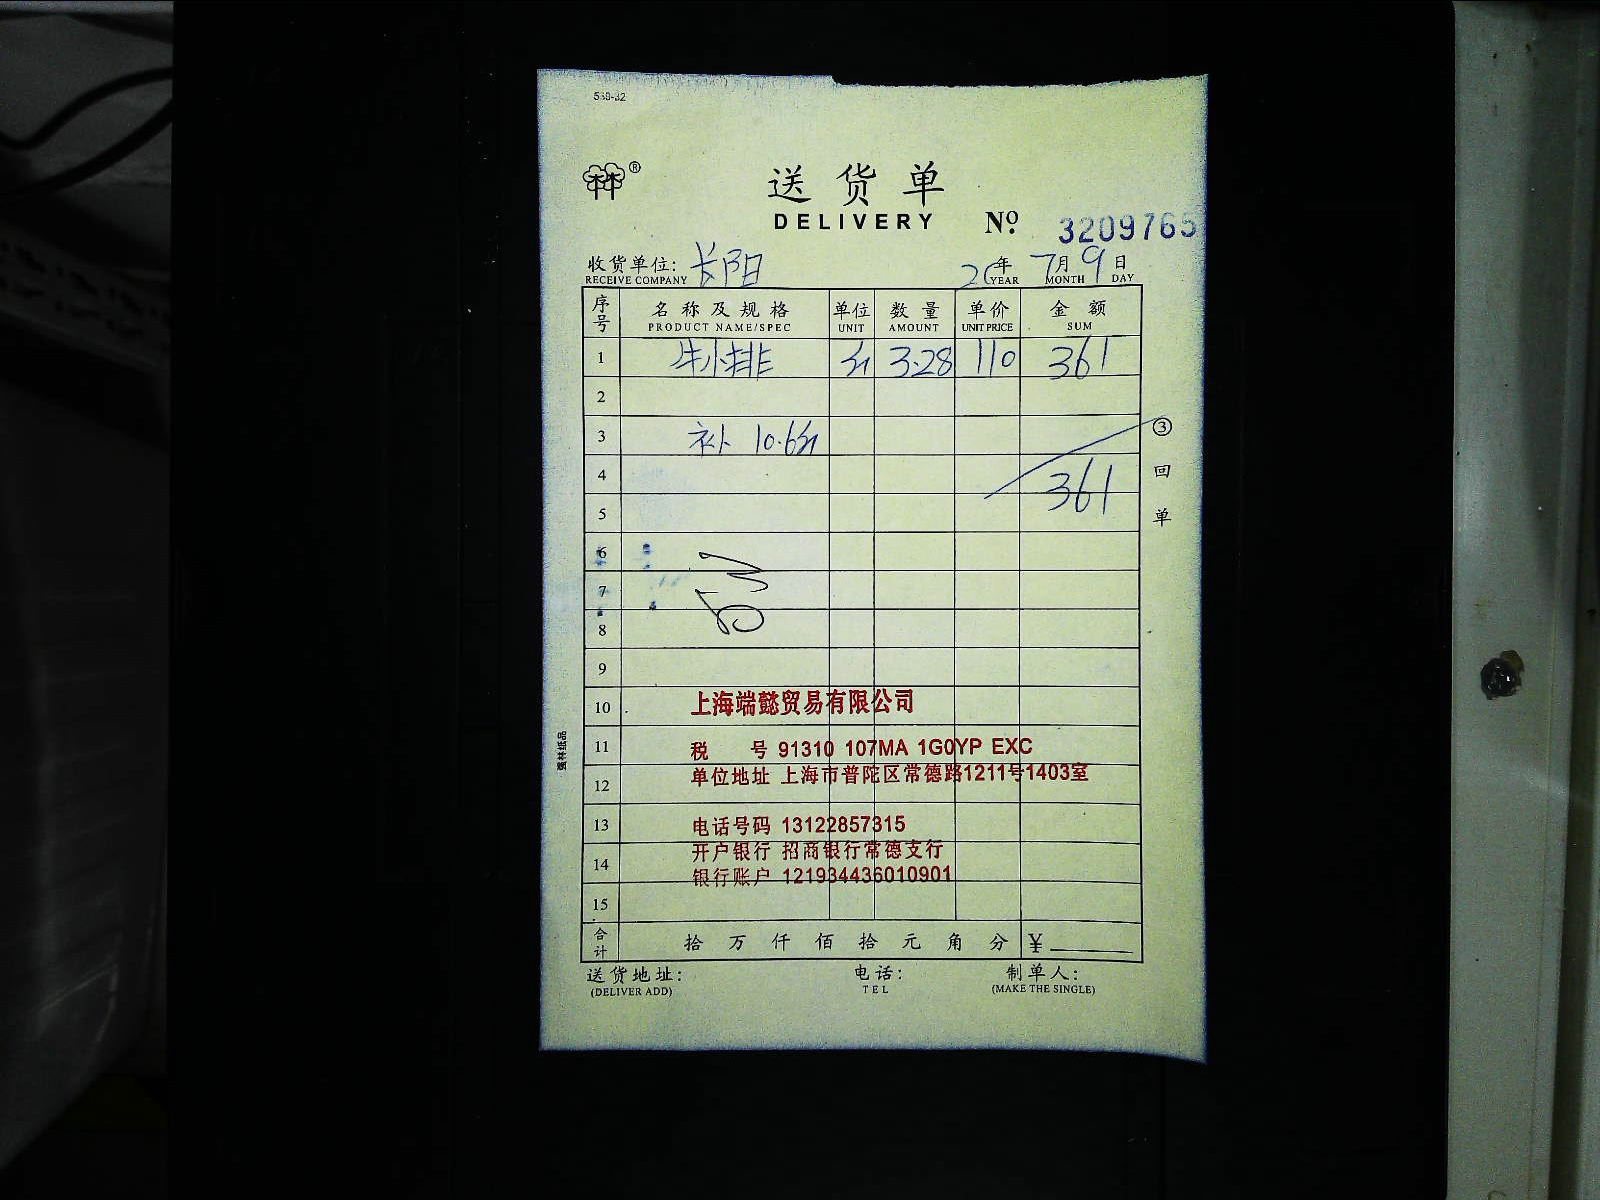 530-32
林®
送货单
DELIVERY
Nº. 3209765
收货单位: 长阳 26年 7月 9日
RECEIVE COMPANY YEAR MONTH DAY
序号 名称及规格 单位 数量 单价 金额
PRODUCT NAME/SPEC UNIT AMOUNT UNIT PRICE SUM
1 牛小排 斤 3.28 110 361
2
3 补 10.6斤
4 361
5
6
7
8
9
10 上海端懿贸易有限公司
11 税 号 91310 107MA 1G0YP EXC
12 单位地址 上海市普陀区常德路1211号1403室
13 电话号码 13122857315
14 开户银行 招商银行常德支行
银行账户 121934436010901
15
合计 拾 万 仟 佰 拾 元 角 分 ¥
送货地址: 电话: 制单人:
(DELIVER ADD) TEL (MAKE THE SINGLE)
③ 回单